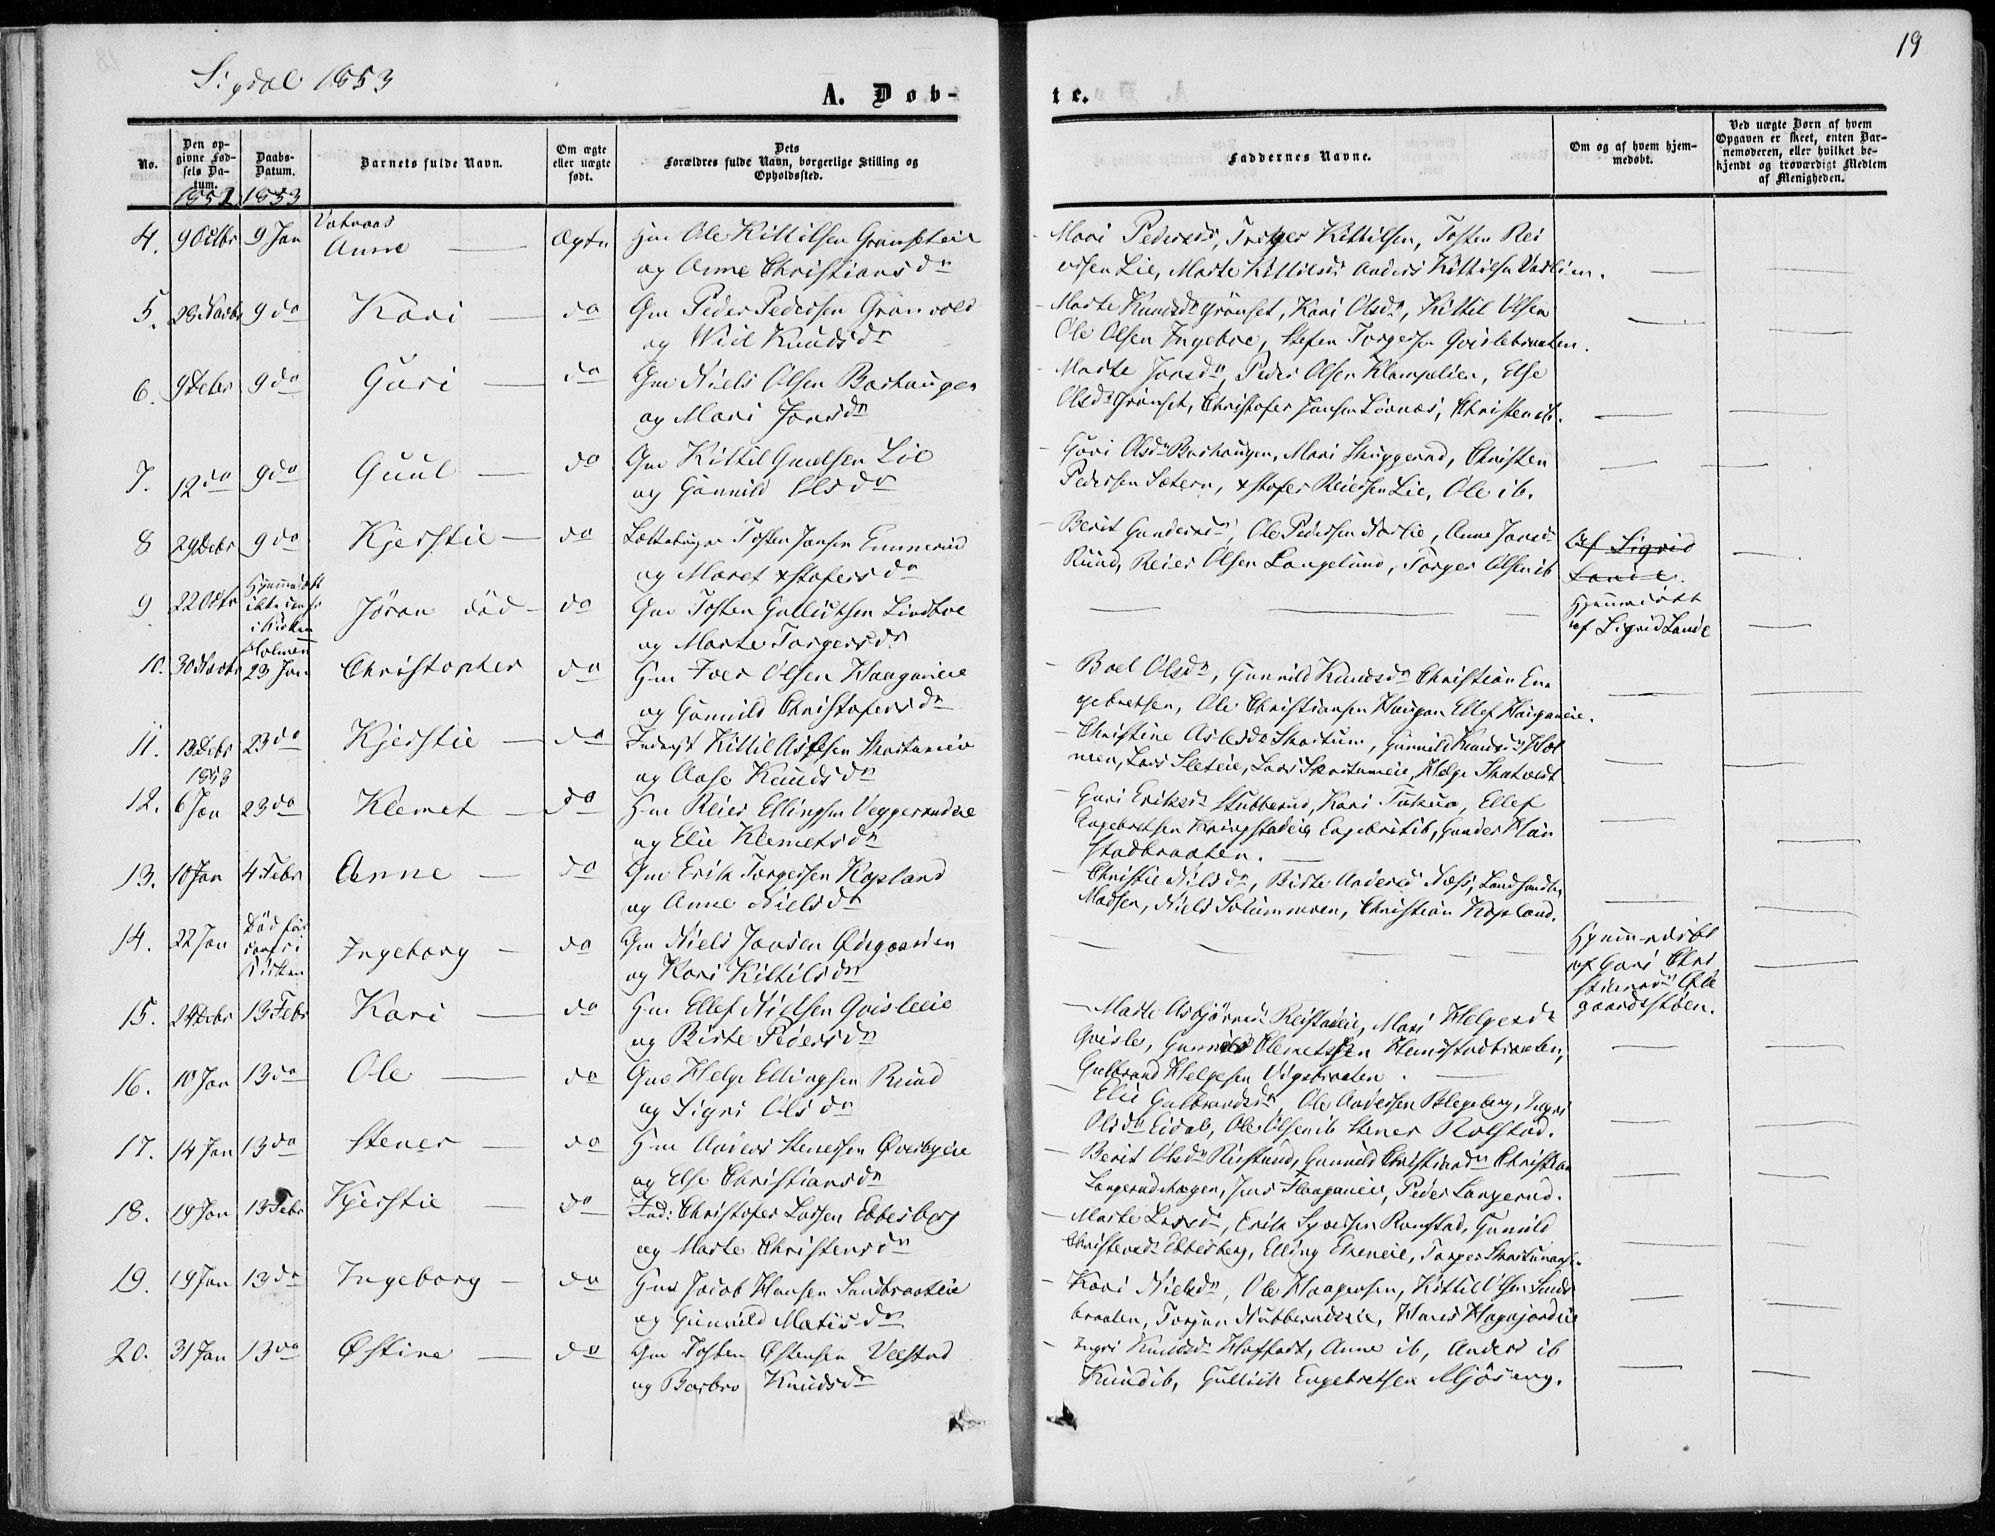 Sigdal 1853
19
A. Døb-
te.
No.
Den op-
givne Fød-
sels Da-
tum.
Daabs-
Datum.
Barnets fulde Navn.
Om ægte
eller uægte
født.
Dets
Forældres fulde Navn, borgerlige Stilling og
Opholdssted.
Faddernes Navne.
Om og af hvem hjem-
medøbt.
Ved uægte Børn af hvem
Opgaven er skeet, enten Bar-
nemoderen, eller hvilket be-
kjendt og troværdigt Medlem
af Menigheden.
1852 1853
Vatnaas
4. 9 Octbr 9 Jan Anne — Ægte Hm Ole Kittilsen Grønseteie
og Anne Christiansdr
Mari Pedersdr, Kittilsen, Tosten Rei
ersen Lie, Marte Kittilsdr Anders Kittilsen
5. 9 do Kari — do Gm Peder Pedersen Grønvold
og Knudsdr
Marte Knudsdr Grønset, Kari Olsdr, Kittil Olsen
Ole Olsen Ingebre, Stefen Torgersen Qvislebraaten.
6. 9 Debr 9 do Guri — do Gm Niels Olsen Barhaugen
og Mari Jonsdr
Marte Jonsdr, Peder Olsen Klampelien, Else
Olsdr Grønset, Christofer Jansen, Christen ib.
7. 12 do 9 do Guul — do Gm Kittil Guulsen Lie
og Gunnild Olsdr
Guri Olsdr Barhaugen, Mari Skuggerud, Christen
Pedersen Sætern, xstofer Reiersen Lie, Ole ib.
8 29 Debr 9 do Kjerstie — do Tosten Jansen Emmerud
og Maret xstofersdr
Berit Gundersdr, Ole Pedersen, Anne Jonsdr
Ruud, Reier Olsen Langelund, Torger Olsen ib
Af Sigrid
Lande.
9 22 Octr Hjemmedøbt
ikke
i Kirken Jøran død — do Gm Tosten Gullicksen
og Marte Torgersdr
Hjemmedøbt
af Sigrid Lande
Holmen
10. 30 Novbr 23 Jan Christopher do Hm Iver Olsen Haaganeie
og Gunnild Christofersdr
Boel Olsdr, Gunnild Knudsdr Christian En
gebretsen, Ole Christiansen Haugan Ellef Hauganeie.
11. 13 Debr 23 do Kjerstie — do Inderst Kittil Aslesen Skartumeie
og Aase Knudsdr
Christine Aslesdr Skartum, Gunnild Knudsdr Hol
men, Lars Sleteie, Lars Skartumeie, Helge Skatvedt
1853
12. 6 Jan 23 do Klemet — do Hm Reier Ellingsen Veggerudeie
og Elie Klemetsdr
Guri Eriksdr Stubberud, Kari, Ellef
Engebretsen, Engebret ib, Gunder Hau
stadbraaten.
13. 10 Jan 4 Febr Anne — do Gm Erik Torgersen Kopland
og Anne Nielsdr
Christie Nilsdr, Birte Andersd Næss, Landhandler
Madsen, Niels Solummoen, Christian Kopland.
14. 22 Jan Død før
i
Kirken Ingeborg — do Gm Niels Jonsen Ødegaarden
og Kari Kittilsdr
Hjemmedøbt
af Guri Chri
stiansdr Øde
gaardsstøen.
15. 24 Debr 13 Febr Kari — do Hm Ellef Nielsen Qvisleie
og Birte Pedersdr
Marte Asbjørnsdr, Mari Helgesdr
Qvisle, Clemetsen Haustadbraaten,
Gulbrand Helgesen
16. 10 Jan 13 do Ole — do Gm Helge Ellingsen Ruud
og Sigri Olsdr
Elie Gulbrandsdr, Ole Andersen Blegeberg, Ingri
Olsdr Eidal, Ole Olsen ib Stener Rolstad.
17. 14 Jan 13 do Stener — do Hm Anders Stenersen Øverbyeie
og Else Christiansdr
Berit Olsdr, Gunnild Christiansdr Christian
Langerudhagen, Jens Haaganeie, Peder Langerud.
18. 19 Jan 13 Febr Kjerstie — do Ind: Christofer Larsen Ebbesberg
og Marte Christensdr
Marte Larsdr, Erik Syversen Ramstad, Gunnild
Christensdr Ebbesberg, Elling, Torger
19. 19 Jan 13 do Ingeborg — do Hm Jacob Hansen Sandbraateie
og Gunnild Matisdr
Kari Nielsdr, Ole Haagensen, Kittil Olsen Sand
braaten, Torjun Stubberudeie, Hans
20. 31 Jan 13 do Østine — do Gm Tosten Østensen Velstad
og Barbro Knudsdr
Ingri Knudsdr, Anne ib, Anders ib
Knud ib, Gullik Engebretsen Mjøseng.